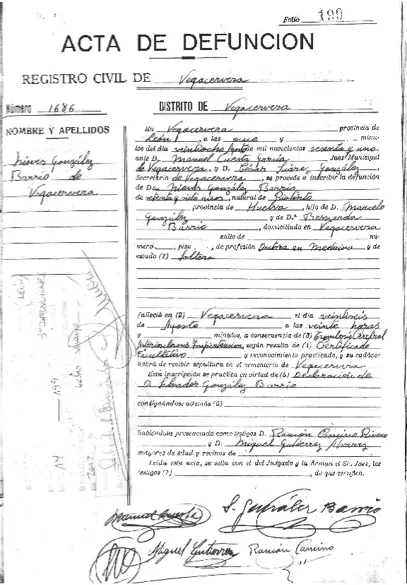 Folio 199
ACTA DE DEFUNCION
REGISTRO CIVIL DE Vegacervera
Número 1686
DISTRITO DE Vegacervera
NOMBRE Y APELLIDOS
Nieves González
Barrio de
Vegacervera
En Vegacervera provincia de
León, a las once y minu-
tos del día veintiocho de mil novecientos sesenta y uno
ante D. Manuel Cuesta García Juez Municipal
de Vegacervera, y D. César Suárez González,
Secretario de Vegacervera, se procede a inscribir la defunción
de Dª Nieves González Barrio
de ochenta y años, natural de
provincia de Huelva, hijo de D. Manuel
González y de Dª Bernarda
Barrio, domiciliado en Vegacervera
calle de nú-
mero, piso, de profesión Doctora en Medicina y de
estado (1) Soltera
falleció en (2) Vegacervera el día veintiséis
de Agosto a las veinte horas
y minutos, a consecuencia de (3) Cerebral
según resulta de (4) Certificado
Facultativo y reconocimiento practicado, y su cadáver
habrá de recibir sepultura en el cementerio de Vegacervera
Esta inscripción se practica en virtud de (5) Declaración de
D. Salvador González Barrio
consignándose además (6)
habiéndola presenciado como testigos D. Ramón
y D. Miguel Gutiérrez Alvarez
mayores de edad y vecinos de
Leída esta acta, se sella con el del Juzgado y la firman el Sr. Juez, los
testigos (7) de que certifico.
Manuel Cuesta
S. González Barrio
Miguel Gutierrez
Ramón